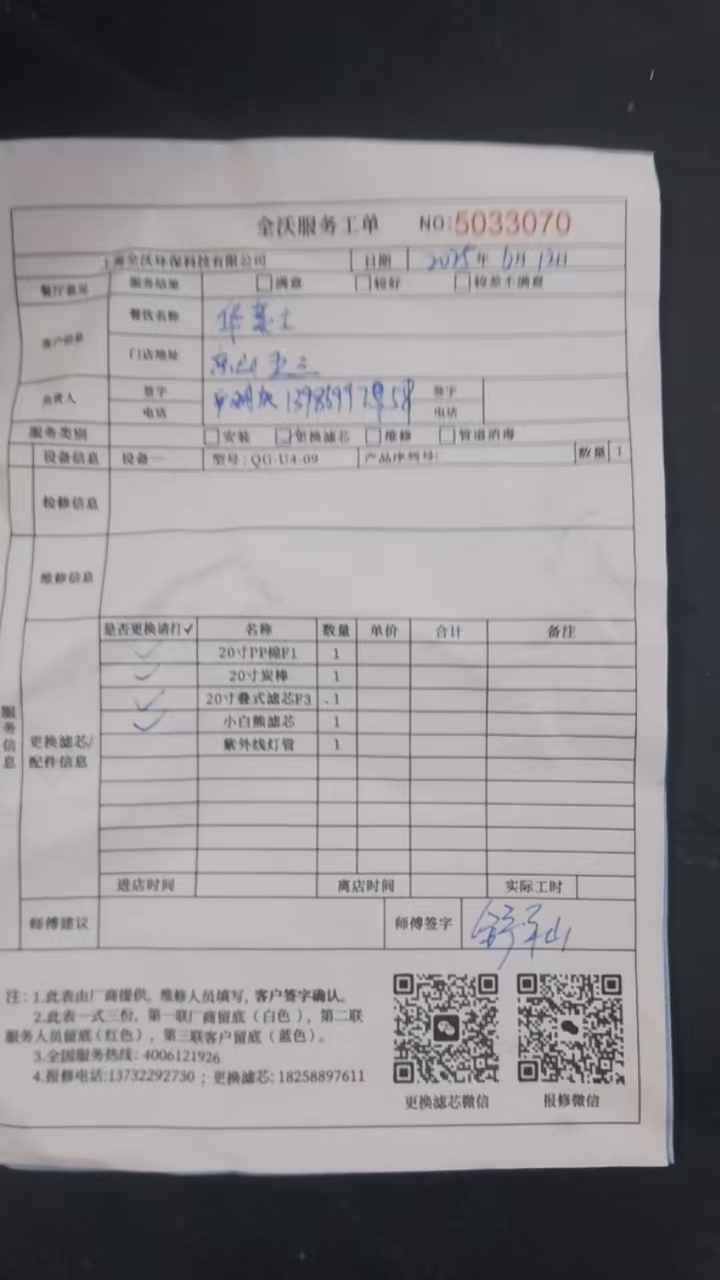 全沃服务工单 NO:5033070
上海全沃环保科技有限公司 日期 2025年6月12日
餐厅意见 服务结果 满意 较好 较差不满意
客户信息 餐饮名称 华莱士
门店地址
负责人 签字 签字
电话 电话
服务类别 安装 更换滤芯 维修 管道消毒
设备信息 设备一 型号:QG-U4-09 产品序列号: 数量 1
检修信息
维修信息
服务信息
更换滤芯/配件信息
是否更换请打✓ 名称 数量 单价 合计 备注
✓ 20寸PP棉F1 1
✓ 20寸炭棒 1
✓ 20寸叠式滤芯F3 1
✓ 小白熊滤芯 1
紫外线灯管 1
进店时间 离店时间 实际工时
师傅建议 师傅签字
注:1.此表由厂商提供,维修人员填写,客户签字确认。
2.此表一式三份,第一联厂商留底(白色),第二联
服务人员留底(红色),第三联客户留底(蓝色)。
3.全国服务热线:4006121926
4.报修电话:13732292730;更换滤芯:18258897611
更换滤芯微信 报修微信